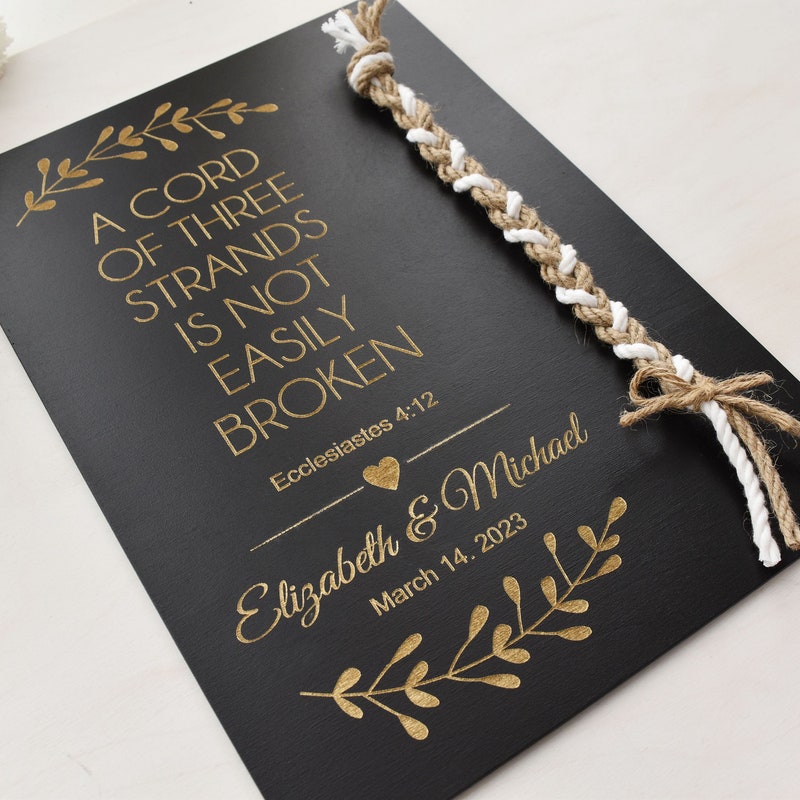 A CORD
OF THREE
STRANDS
IS NOT
EASILY
BROKEN
Ecclesiastes 4:12
Elizabeth & Michael
March 14. 2023